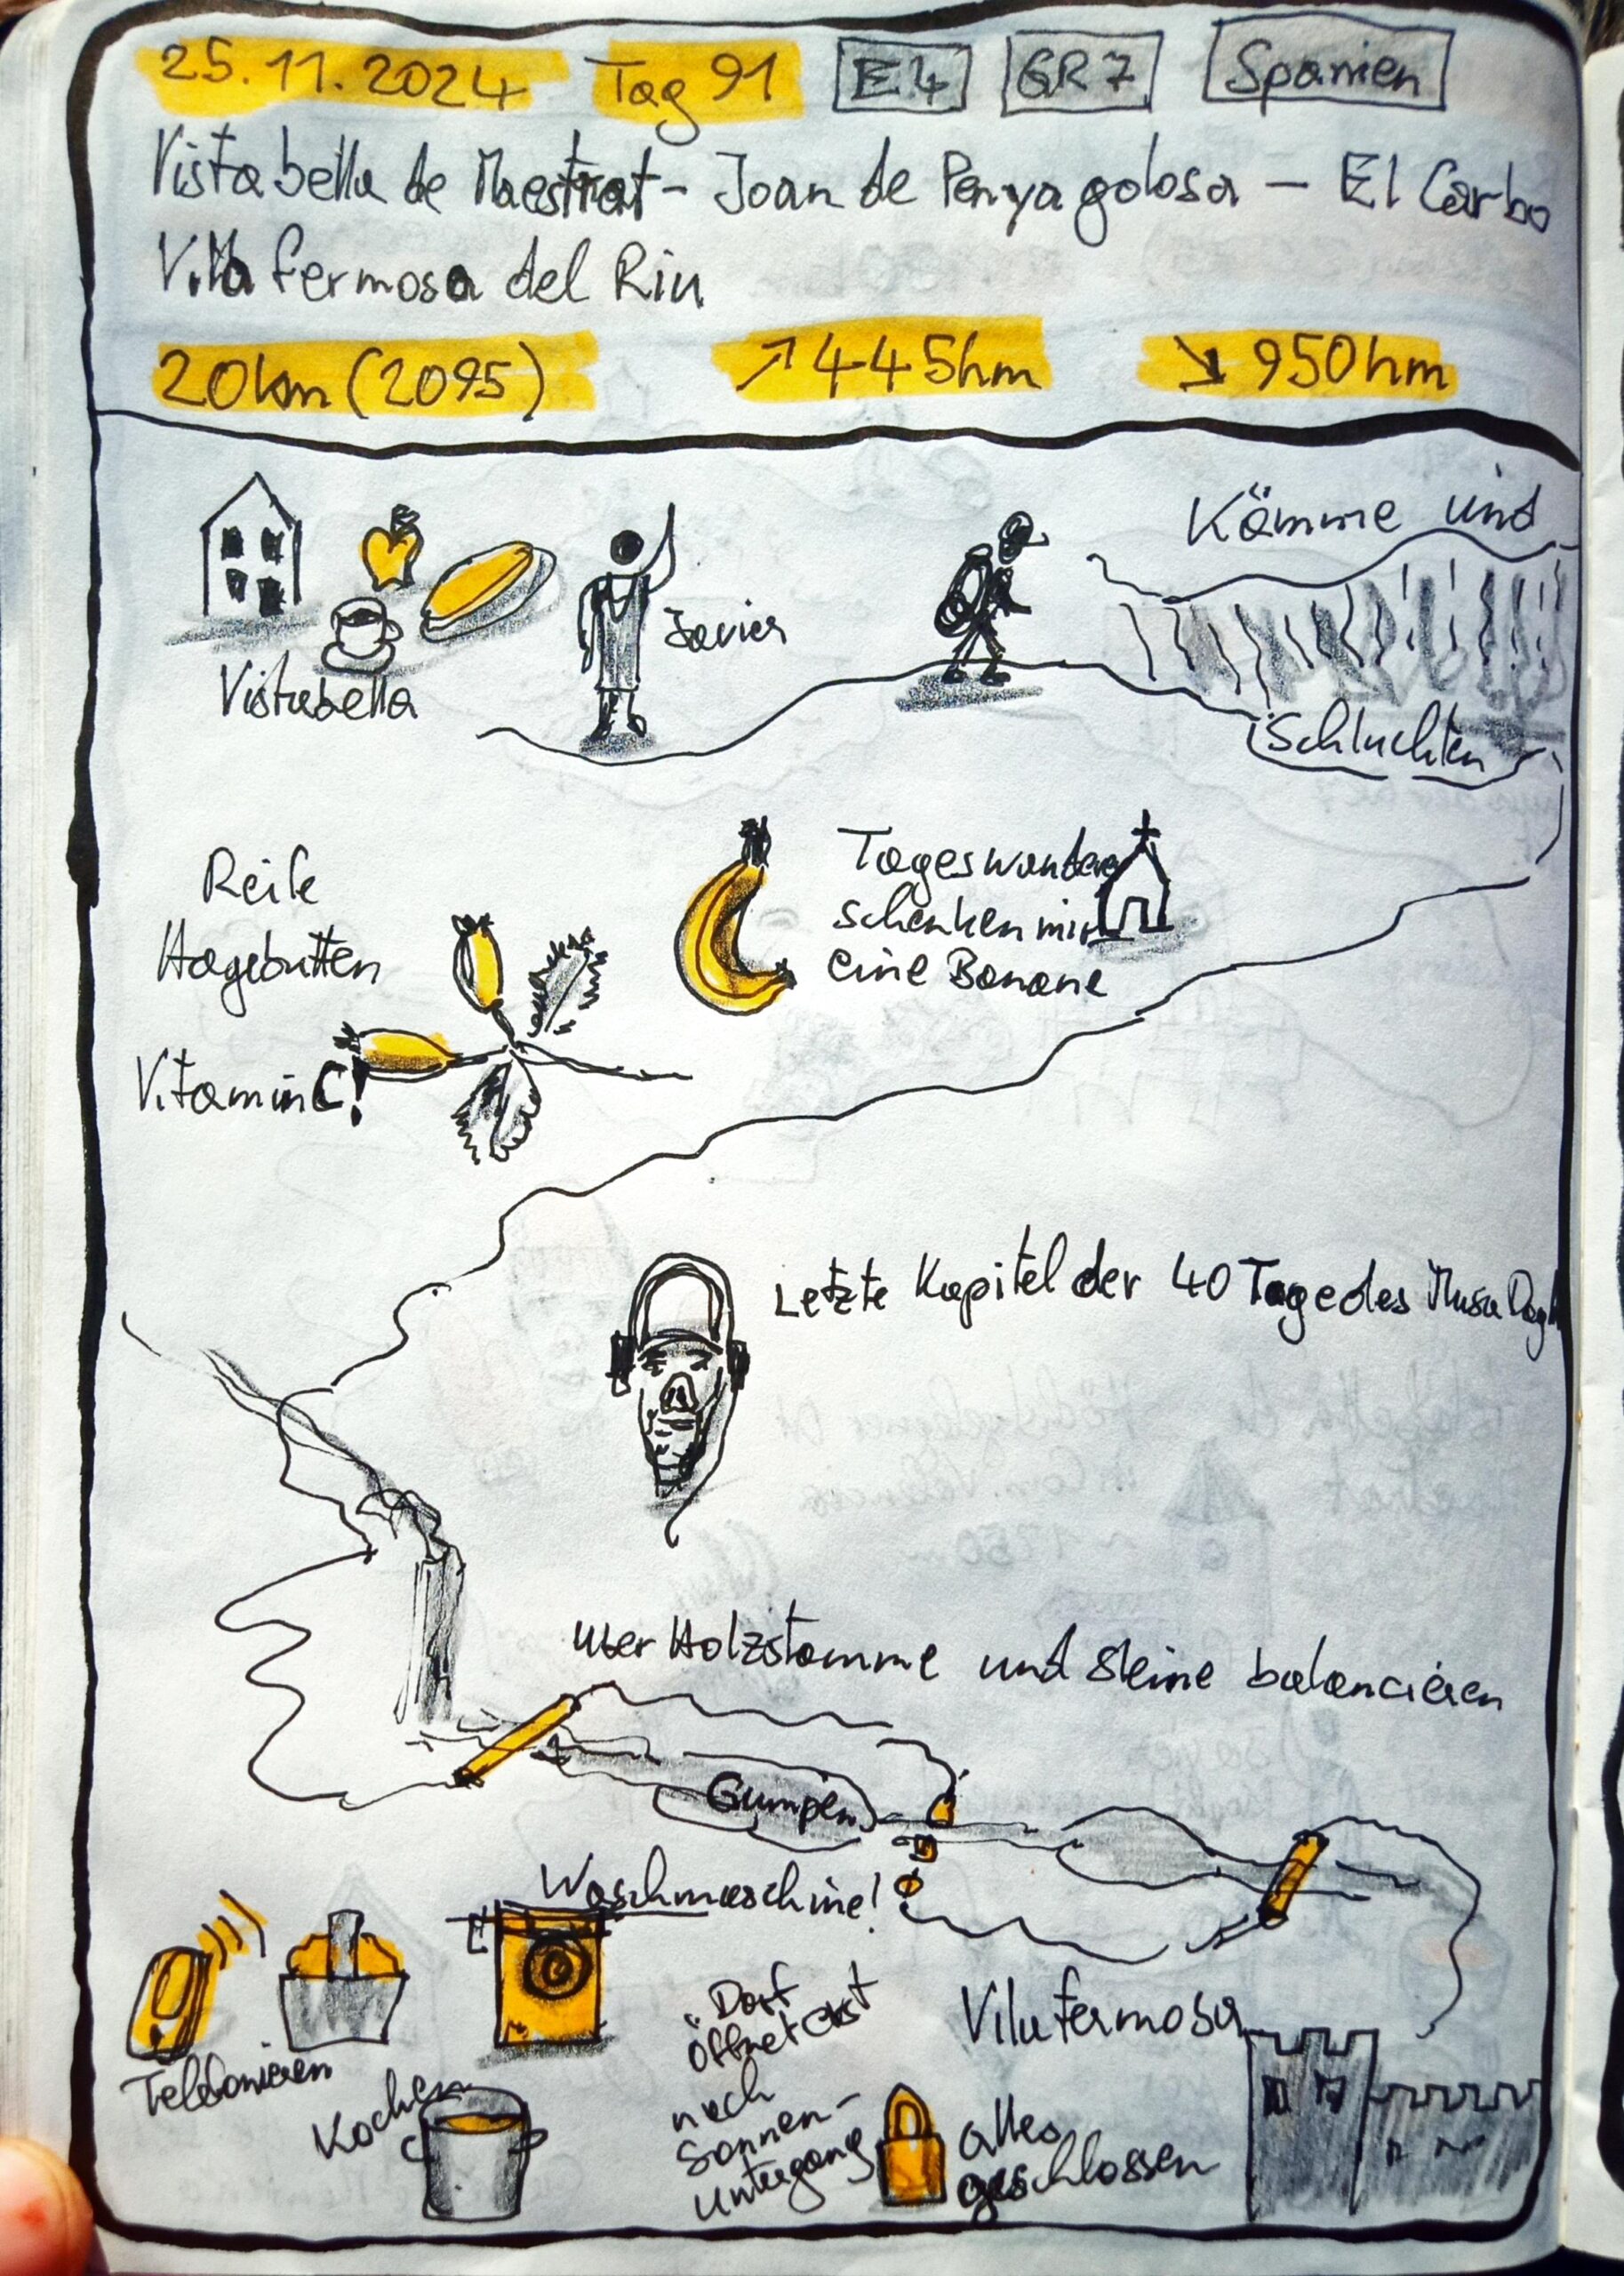 25.11.2024 Tag 91 E4 GR7 Spanien
Vistabella de Maestrat - Joan de Penyagolosa - El Carbo
Villa fermosa del Riu
20km (2095) ↗ 445hm ↘ 950hm
Kämme und
Schluchten
Javier
Vistabella
Reife
Hagebutten
Vitamin C!
Tageswanderer
schenken mir
eine Banane
Letzte Kapitel der 40 Tage des Musa Dagh
über Holzstämme und Steine balancieren
Gumpen
Waschmaschine!
Telefonieren
Kochen
"Dorf
öffnet erst
nach
Sonnen-
untergang
Vilafermosa
alles
geschlossen